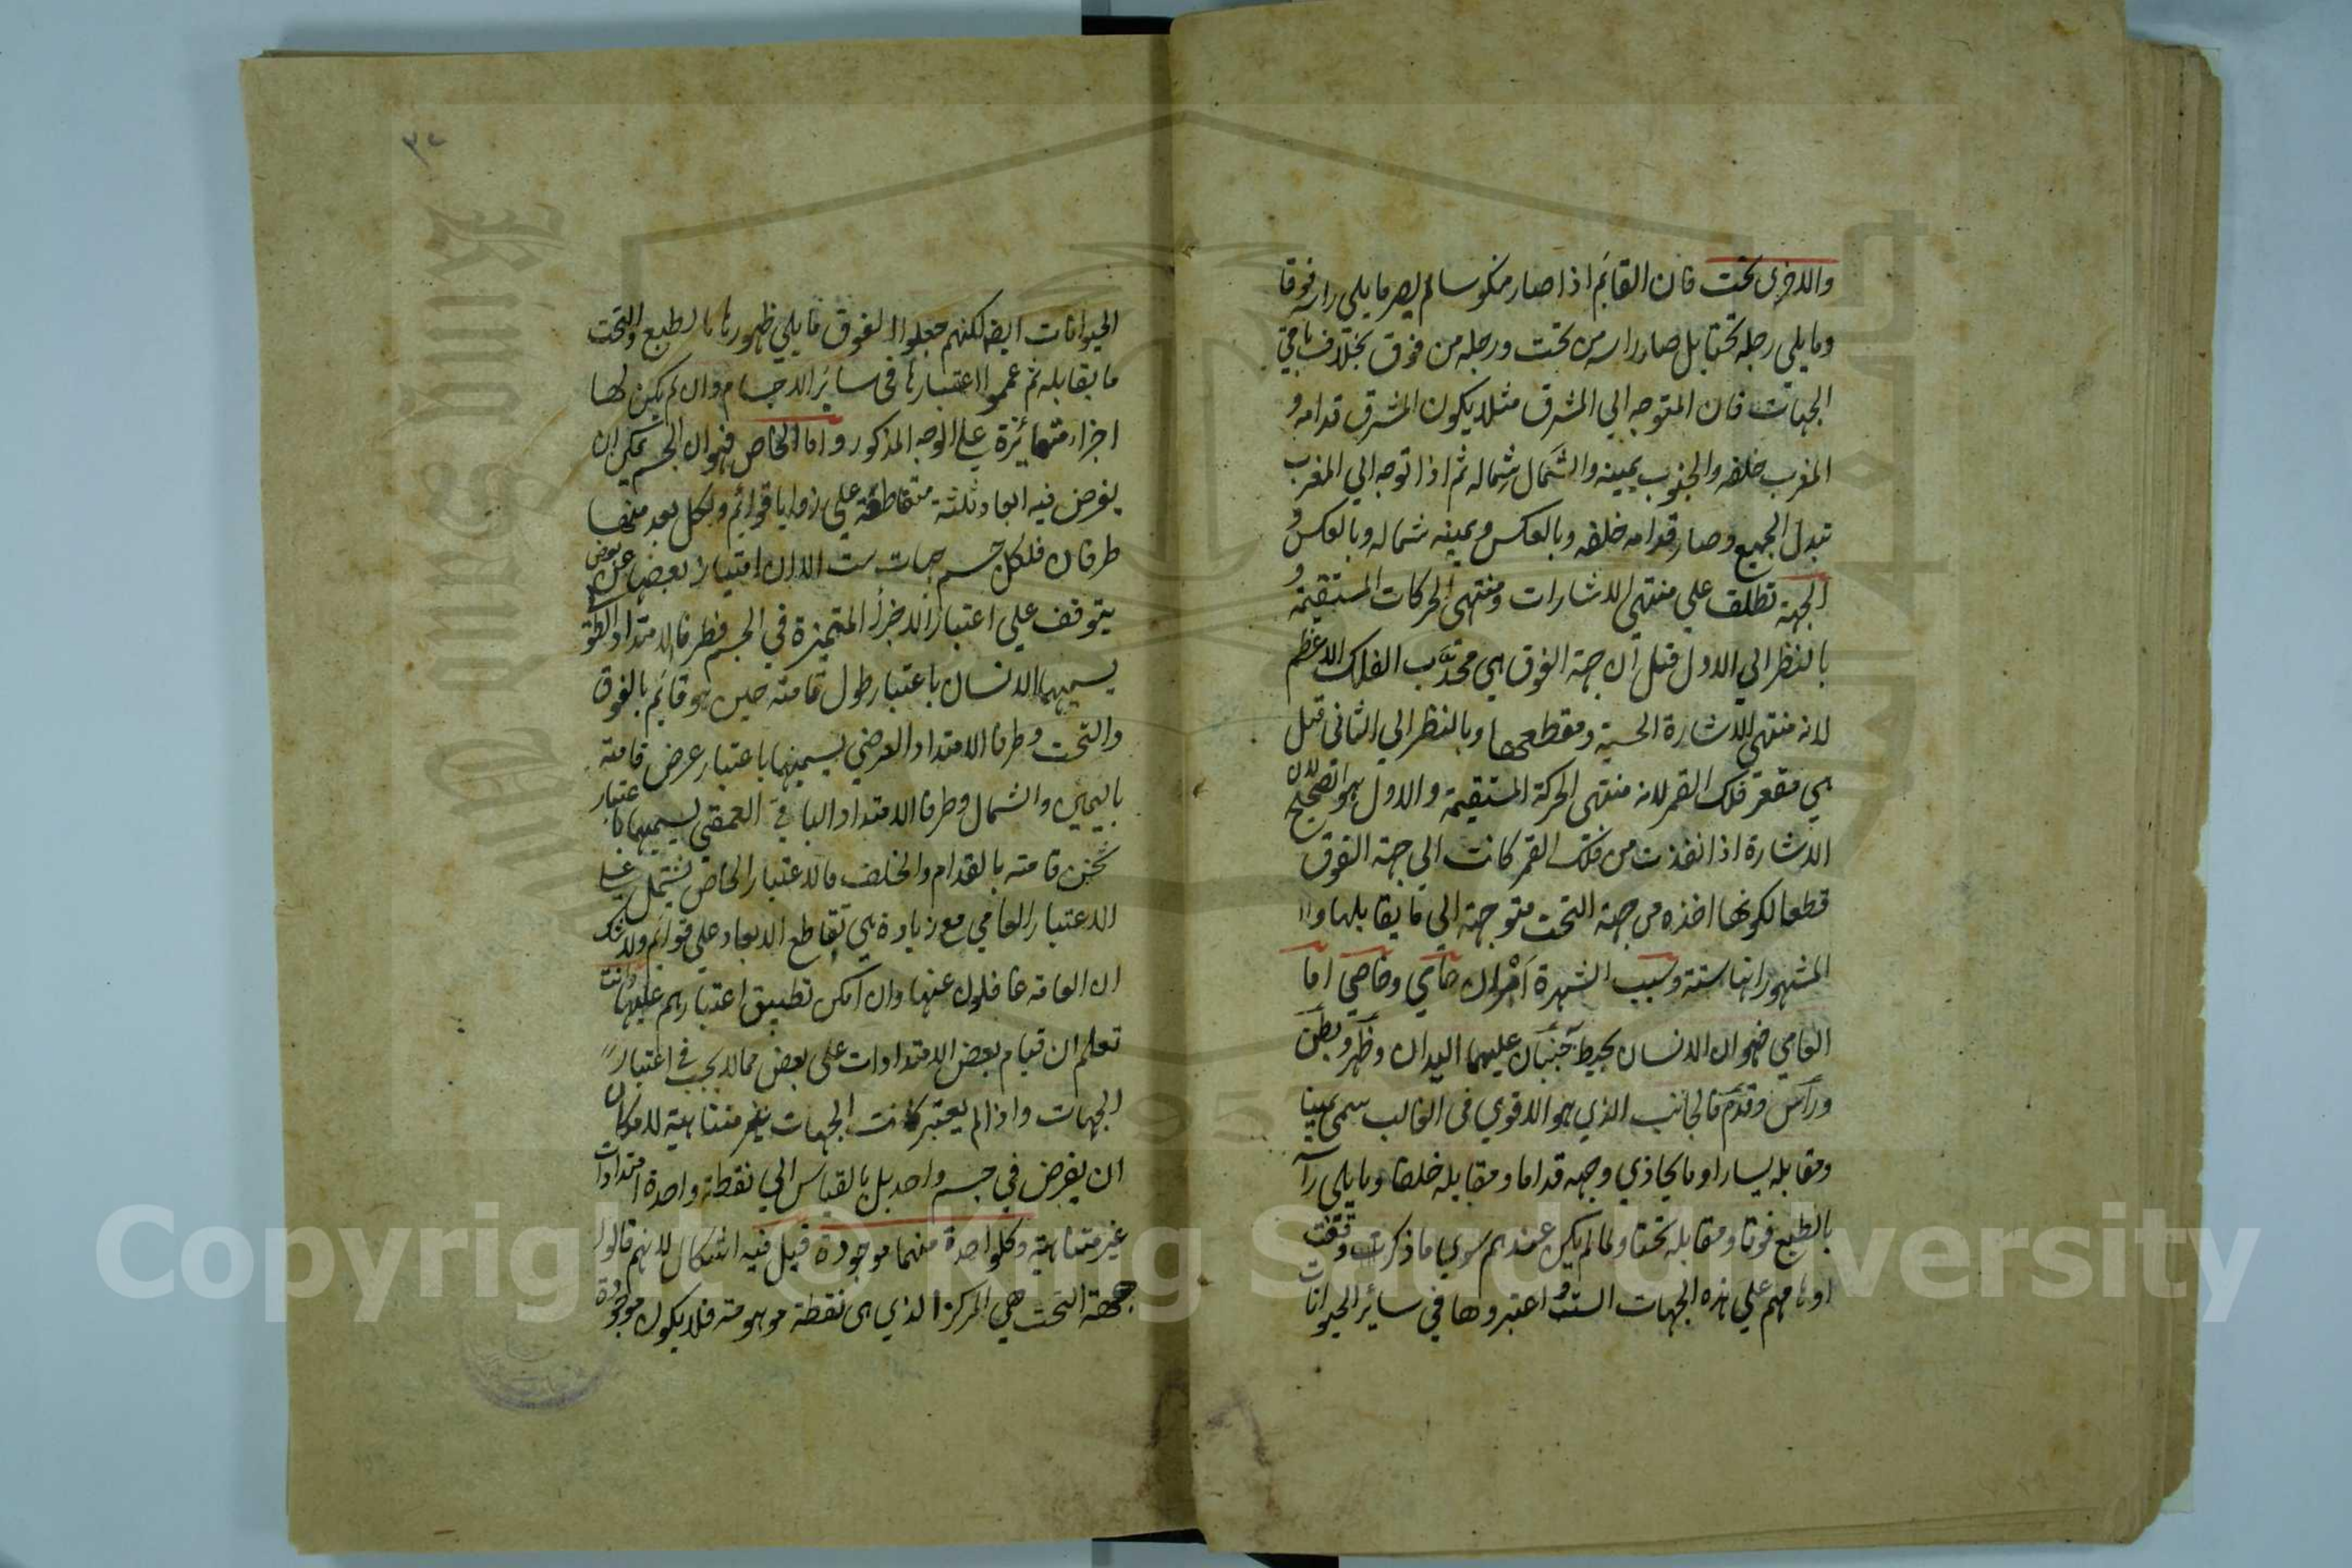 والاخرى تحت فان القائم اذا صار منكوسا لم يصر ما يلي راسه فوقا
وما يلي رجله تحتا بل صار راسه من تحت ورجله من فوق بخلاف باقي
الجهات فان المتوجه الي المشرق مثلا يكون المشرق قدامه و
المغرب خلفه والجنوب يمينه والشمال شماله ثم اذا توجه الي المغرب
تبدل الجميع وصار قدامه خلفه وبالعكس ويمينه شماله وبالعكس و
الجهة تطلق علي منتهى الاشارات ومنتهى الحركات المستقيمة و
بالنظر الي الاول قيل ان جهة الفوق هي محدّب الفلك الاعظم
لانه منتهى الاشارة الحسية ومقطعها وبالنظر الي الثاني قيل
هي مقعر فلك القمر لانه منتهى الحركة المستقيمة والاول هو الصحيح لان
الاشارة اذا نفذت من فلك القمر كانت الي جهة الفوق
قطعا لكونها اخذه من جهة التحت متوجهة الي ما يقابلها وا
المشهور انها ستة وسبب الشهرة امران عامي وخاصي اما
العامي فهو ان الانسان يحيط جنبان عليهما اليدان وظهر وبطن
وراس وقدم فالجانب الذي هو الاقوي في الغالب سمى يمينا
ومقابله يسارا وما يحاذي وجهه قداما ومقابله خلفا وما يلي را
بالطبع فوقا ومقابله تحتا ولما لم يكن عندهم سوي ما ذكرت وقفت
اوهامهم علي هذه الجهات الست واعتبروها في سائر الحيوانات
٣٠
الحيوانات ايضا لكنهم جعلوا الفوق ما يلي ظهورها بالطبع والتحت
ما يقابله ثم عمموا اعتبارها في سائر الاجسام وان لم يكن لها
اجزاء متمايزة علي الوجه المذكور واما الخاص فهو ان الجسم يمكن ان
يفرض فيه ابعاد ثلثة متقاطعة علي زوايا قوائم ولكل بعد منها
طرفان فلكل جسم جهات ست الا ان امتياز بعضها عن بعض
يتوقف علي اعتبار الاجزا المتميزة في الجسم فطرفا الامتداد الطو
يسميهما الانسان باعتبار طول قامته حين هو قائم بالفوق
والتحت وطرفا الامتداد العرضي يسميهما باعتبار عرض قامته
باليمين والشمال وطرفا الامتداد الباقي العمقي يسميهما باعتبار
ثخن قامته بالقدام والخلف فالاعتبار الخاص يشتمل علي
الاعتبار العامي مع زيادة هي تقاطع الابعاد علي قوائم ولا شك
ان العامة غافلون عنها وان امكن تطبيق اعتبارهم عليها وانت
تعلم ان قيام بعض الامتدادات على بعض مما لا يجب في اعتبار
الجهات واذا لم يعتبر كانت الجهات غير متناهية لامكان
ان يفرض في جسم واحد بل بالقياس الي نقطة واحدة امتدادات
غير متناهية وكل واحدة منهما موجودة قيل فيه اشكال لانهم قالوا
جهة التحت هي المركز الذي هي نقطة موهومة فلا يكون موجودة
King Saud University
Copyright © King Saud University